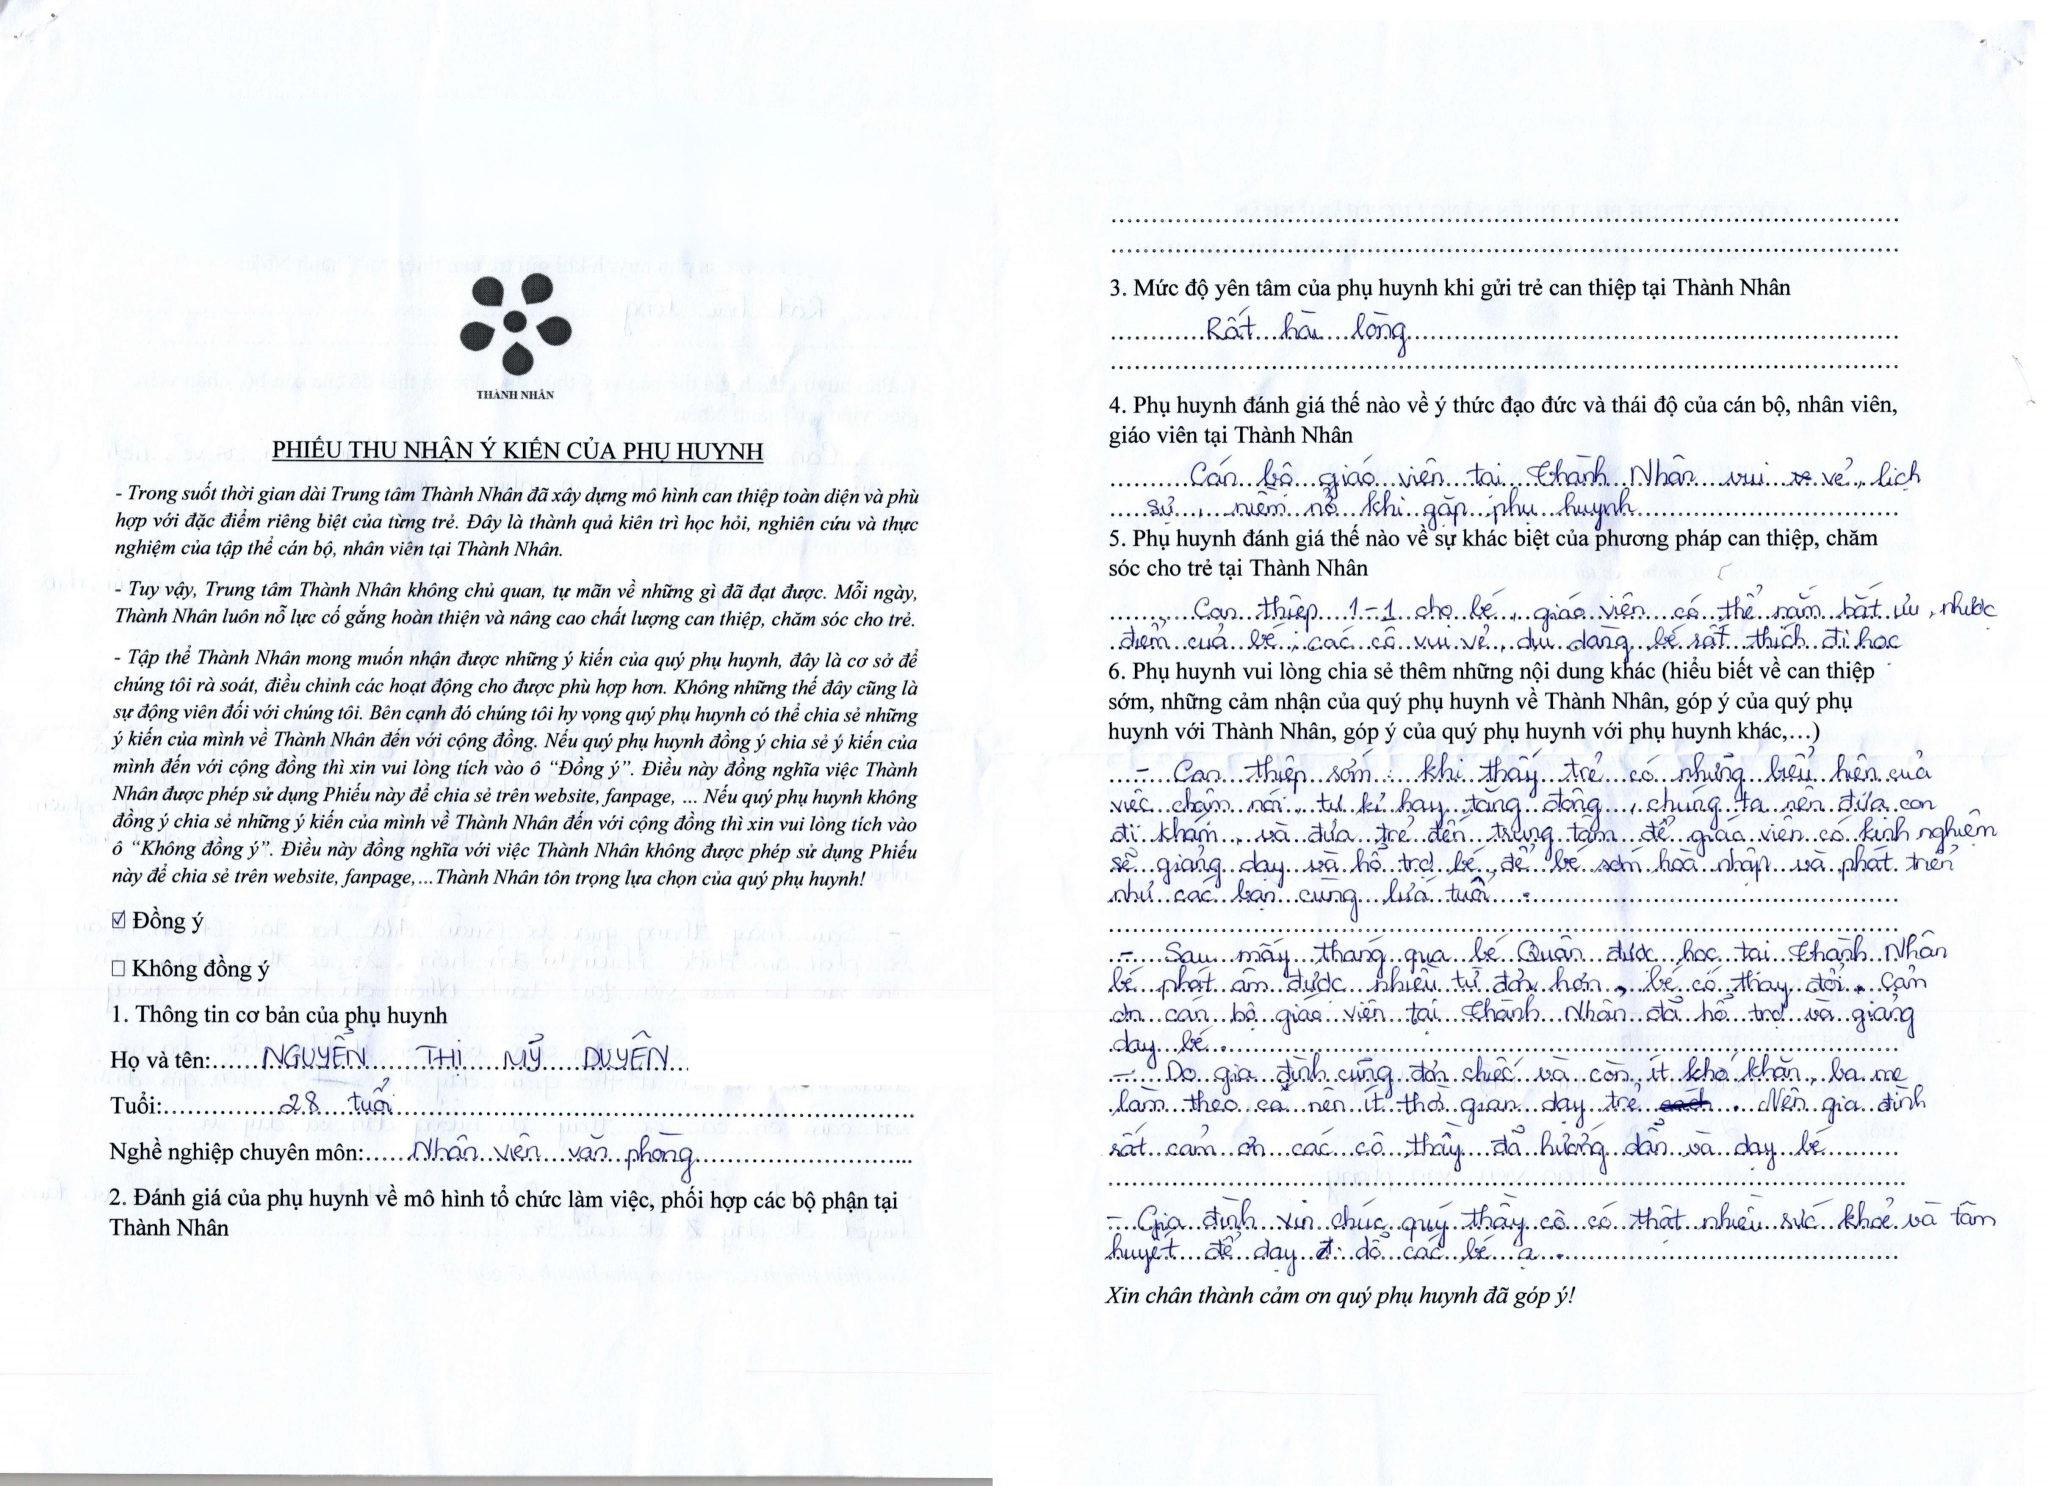 THÀNH NHÂN
PHIẾU THU NHẬN Ý KIẾN CỦA PHỤ HUYNH
- Trong suốt thời gian dài Trung tâm Thành Nhân đã xây dựng mô hình can thiệp toàn diện và phù
hợp với đặc điểm riêng biệt của từng trẻ. Đây là thành quả kiên trì học hỏi, nghiên cứu và thực
nghiệm của tập thể cán bộ, nhân viên tại Thành Nhân.
- Tuy vậy, Trung tâm Thành Nhân không chủ quan, tự mãn về những gì đã đạt được. Mỗi ngày,
Thành Nhân luôn nỗ lực cố gắng hoàn thiện và nâng cao chất lượng can thiệp, chăm sóc cho trẻ.
- Tập thể Thành Nhân mong muốn nhận được những ý kiến của quý phụ huynh, đây là cơ sở để
chúng tôi rà soát, điều chỉnh các hoạt động cho được phù hợp hơn. Không những thế đây cũng là
sự động viên đối với chúng tôi. Bên cạnh đó chúng tôi hy vọng quý phụ huynh có thể chia sẻ những
ý kiến của mình về Thành Nhân đến với cộng đồng. Nếu quý phụ huynh đồng ý chia sẻ ý kiến của
mình đến với cộng đồng thì xin vui lòng tích vào ô “Đồng ý”. Điều này đồng nghĩa việc Thành
Nhân được phép sử dụng Phiếu này để chia sẻ trên website, fanpage, ... Nếu quý phụ huynh không
đồng ý chia sẻ những ý kiến của mình về Thành Nhân đến với cộng đồng thì xin vui lòng tích vào
ô “Không đồng ý”. Điều này đồng nghĩa với việc Thành Nhân không được phép sử dụng Phiếu
này để chia sẻ trên website, fanpage,…Thành Nhân tôn trọng lựa chọn của quý phụ huynh!
☑ Đồng ý
☐ Không đồng ý
1. Thông tin cơ bản của phụ huynh
Họ và tên: NGUYỄN THỊ MỸ DUYÊN
Tuổi: 28 tuổi
Nghề nghiệp chuyên môn: Nhân viên văn phòng
2. Đánh giá của phụ huynh về mô hình tổ chức làm việc, phối hợp các bộ phận tại
Thành Nhân
3. Mức độ yên tâm của phụ huynh khi gửi trẻ can thiệp tại Thành Nhân
Rất hài lòng
4. Phụ huynh đánh giá thế nào về ý thức đạo đức và thái độ của cán bộ, nhân viên,
giáo viên tại Thành Nhân
Cán bộ giáo viên tại Thành Nhân vui vẻ, lịch
sự, niềm nở khi gặp phụ huynh
5. Phụ huynh đánh giá thế nào về sự khác biệt của phương pháp can thiệp, chăm
sóc cho trẻ tại Thành Nhân
Can thiệp 1-1 cho bé, giáo viên có thể nắm bắt ưu, nhược
điểm của bé, các cô vui vẻ, dịu dàng, bé rất thích đi học
6. Phụ huynh vui lòng chia sẻ thêm những nội dung khác (hiểu biết về can thiệp
sớm, những cảm nhận của quý phụ huynh về Thành Nhân, góp ý của quý phụ
huynh với Thành Nhân, góp ý của quý phụ huynh với phụ huynh khác,…)
- Can thiệp sớm: khi thấy trẻ có những biểu hiện của
việc chậm nói, tự kỉ hay tăng động, chúng ta nên đưa con
đi khám, và đưa trẻ đến trung tâm để giáo viên có kinh nghiệm
sẽ giảng dạy và hổ trợ bé, để bé sớm hoà nhập và phát triển
như các bạn cùng lứa tuổi.
- Sau mấy tháng qua bé Quân được học tại Thành Nhân
bé phát âm được nhiều từ đơn hơn, bé có thay đổi. Cảm
ơn cán bộ giáo viên tại Thành Nhân đã hổ trợ và giảng
dạy bé.
- Do gia đình cũng đơn chiếc và còn ít khó khăn, ba mẹ
làm theo ca nên ít thời gian dạy trẻ. Nên gia đình
rất cảm ơn các cô, thầy đã hướng dẫn và dạy bé
- Gia đình xin chúc quý thầy cô có thật nhiều sức khoẻ và tâm
huyết để dạy dổ các bé ạ.
Xin chân thành cảm ơn quý phụ huynh đã góp ý!